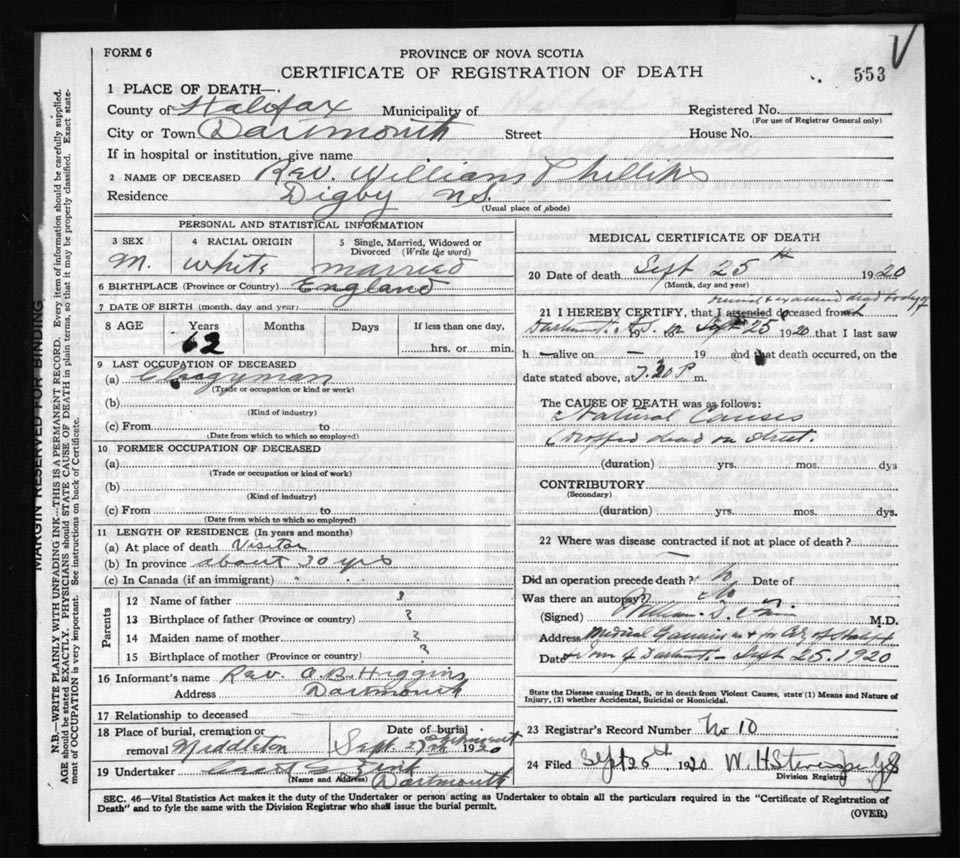 FORM 6
PROVINCE OF NOVA SCOTIA
CERTIFICATE OF REGISTRATION OF DEATH
553
1 PLACE OF DEATH—
County of Halifax Municipality of Registered No.
(For use of Registrar General only)
City or Town Dartmouth Street House No.
If in hospital or institution, give name
2 NAME OF DECEASED Rev. William Phillips
Residence Digby N.S.
(Usual place of abode)
PERSONAL AND STATISTICAL INFORMATION
3 SEX 4 RACIAL ORIGIN 5 Single, Married, Widowed or Divorced (Write the word)
M. White Married
6 BIRTHPLACE (Province or Country) England
7 DATE OF BIRTH (month, day and year)
8 AGE Years Months Days If less than one day,
62 hrs. or min.
9 LAST OCCUPATION OF DECEASED
(a) Clergyman
(Trade or occupation or kind of work)
(b)
(Kind of industry)
(c) From to
(Date from which to which so employed)
10 FORMER OCCUPATION OF DECEASED
(a)
(Trade or occupation or kind of work)
(b)
(Kind of industry)
(c) From to
(Date from which to which so employed)
11 LENGTH OF RESIDENCE (In years and months)
(a) At place of death Visitor
(b) In province about 30 yrs
(c) In Canada (if an immigrant) "
Parents
12 Name of father ?
13 Birthplace of father (Province or country) ?
14 Maiden name of mother ?
15 Birthplace of mother (Province or country) ?
16 Informant's name Rev. O.B. Higgins
Address Dartmouth
17 Relationship to deceased
18 Place of burial, cremation or removal Middleton
Date of burial
Sept. 27th 1920
19 Undertaker
(Name and Address) Dartmouth
MEDICAL CERTIFICATE OF DEATH
20 Date of death Sept 25th 1920
(Month, day and year)
viewed & examined dead body of
21 I HEREBY CERTIFY, that I attended deceased from at
Dartmouth N.S. 19 to on Sept 25 1920 that I last saw
h — alive on — 19 and that death occurred, on the
date stated above, at 7.30 P. m.
The CAUSE OF DEATH was as follows:
Natural Causes
(Dropped dead on street.
(duration) yrs. mos. dys
CONTRIBUTORY
(Secondary)
(duration) yrs. mos. dys.
22 Where was disease contracted if not at place of death?
—
Did an operation precede death? No Date of
Was there an autopsy? No
(Signed) William D. M.D.
Address Medical Examiner for City of Halifax
Date & Town of Dartmouth - Sept 25. 1920
State the Disease causing Death, or in death from Violent Causes, state (1) Means and Nature of Injury, (2) whether Accidental, Suicidal or Homicidal.
23 Registrar's Record Number No 10
24 Filed Sept 26th 1920 W. H.
Division Registrar
SEC. 46—Vital Statistics Act makes it the duty of the Undertaker or person acting as Undertaker to obtain all the particulars required in the "Certificate of Registration of
Death" and to fyle the same with the Division Registrar who shall issue the burial permit.
(OVER)
MARGIN RESERVED FOR BINDING
N.B.—WRITE PLAINLY WITH UNFADING INK—THIS IS A PERMANENT RECORD. Every item of information should be carefully supplied.
AGE should be stated EXACTLY. PHYSICIANS should STATE CAUSE OF DEATH in plain terms, so that it may be properly classified. Exact statement of OCCUPATION is very important. See instructions on back of Certificate.